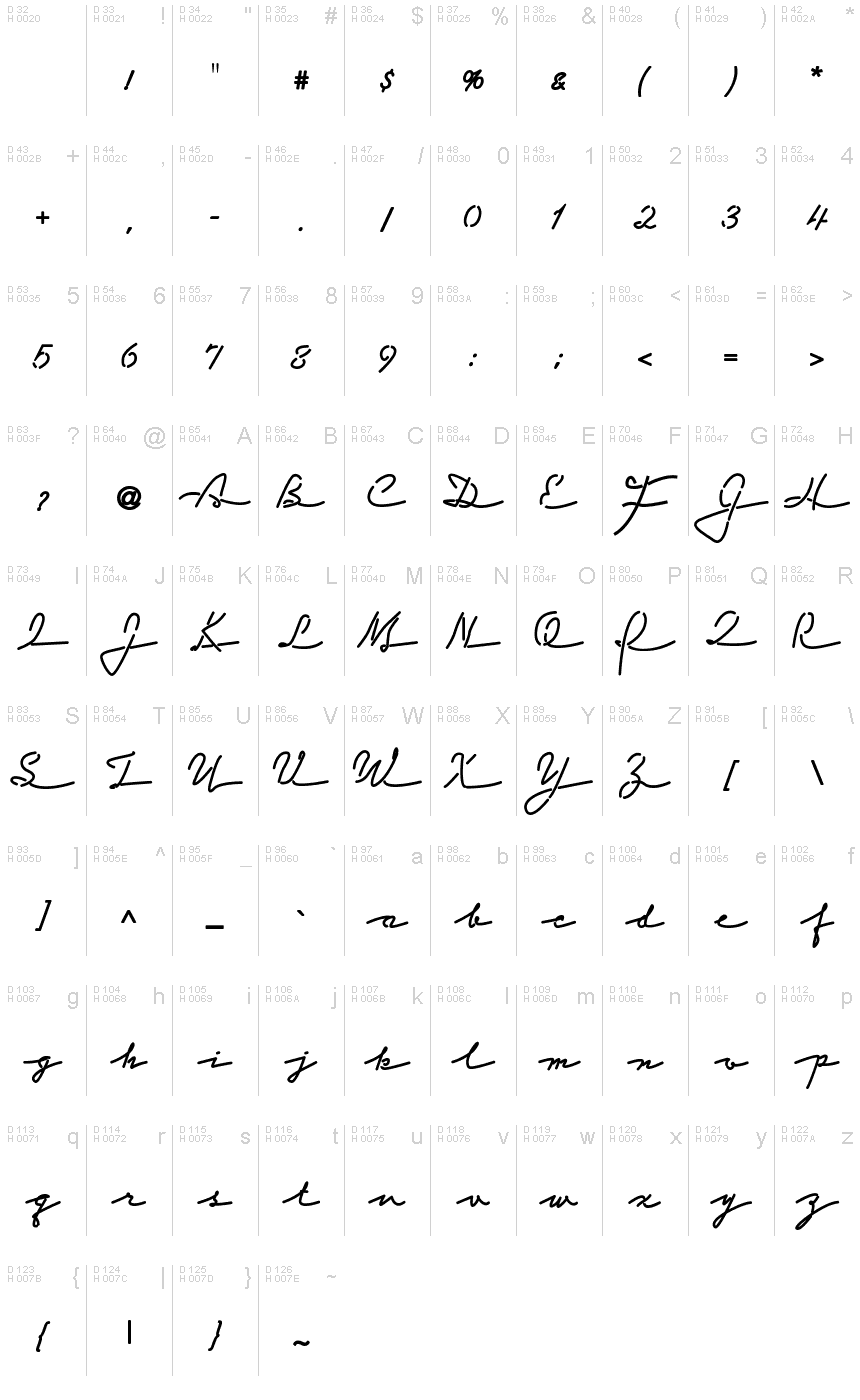 D 32 H 0020 D 33 H 0021 ! D 34 H 0022 " D 35 H 0023 # D 36 H 0024 $ D 37 H 0025 % D 38 H 0026 & D 40 H 0028 ( D 41 H 0029 ) D 42 H 002A *
! " # $ % & ( ) *
D 43 H 002B + D 44 H 002C , D 45 H 002D - D 46 H 002E . D 47 H 002F / D 48 H 0030 0 D 49 H 0031 1 D 50 H 0032 2 D 51 H 0033 3 D 52 H 0034 4
+ , - . / 0 1 2 3 4
D 53 H 0035 5 D 54 H 0036 6 D 55 H 0037 7 D 56 H 0038 8 D 57 H 0039 9 D 58 H 003A : D 59 H 003B ; D 60 H 003C < D 61 H 003D = D 62 H 003E >
5 6 7 8 9 : ; < = >
D 63 H 003F ? D 64 H 0040 @ D 65 H 0041 A D 66 H 0042 B D 67 H 0043 C D 68 H 0044 D D 69 H 0045 E D 70 H 0046 F D 71 H 0047 G D 72 H 0048 H
? @ A B C D E F G H
D 73 H 0049 I D 74 H 004A J D 75 H 004B K D 76 H 004C L D 77 H 004D M D 78 H 004E N D 79 H 004F O D 80 H 0050 P D 81 H 0051 Q D 82 H 0052 R
I J K L M N O P Q R
D 83 H 0053 S D 84 H 0054 T D 85 H 0055 U D 86 H 0056 V D 87 H 0057 W D 88 H 0058 X D 89 H 0059 Y D 90 H 005A Z D 91 H 005B [ D 92 H 005C \
S T U V W X Y Z [ \
D 93 H 005D ] D 94 H 005E ^ D 95 H 005F _ D 96 H 0060 ` D 97 H 0061 a D 98 H 0062 b D 99 H 0063 c D 100 H 0064 d D 101 H 0065 e D 102 H 0066 f
] ^ _ ` a b c d e f
D 103 H 0067 g D 104 H 0068 h D 105 H 0069 i D 106 H 006A j D 107 H 006B k D 108 H 006C l D 109 H 006D m D 110 H 006E n D 111 H 006F o D 112 H 0070 p
g h i j k l m n o p
D 113 H 0071 q D 114 H 0072 r D 115 H 0073 s D 116 H 0074 t D 117 H 0075 u D 118 H 0076 v D 119 H 0077 w D 120 H 0078 x D 121 H 0079 y D 122 H 007A z
q r s t u v w x y z
D 123 H 007B { D 124 H 007C | D 125 H 007D } D 126 H 007E ~
{ | } ~